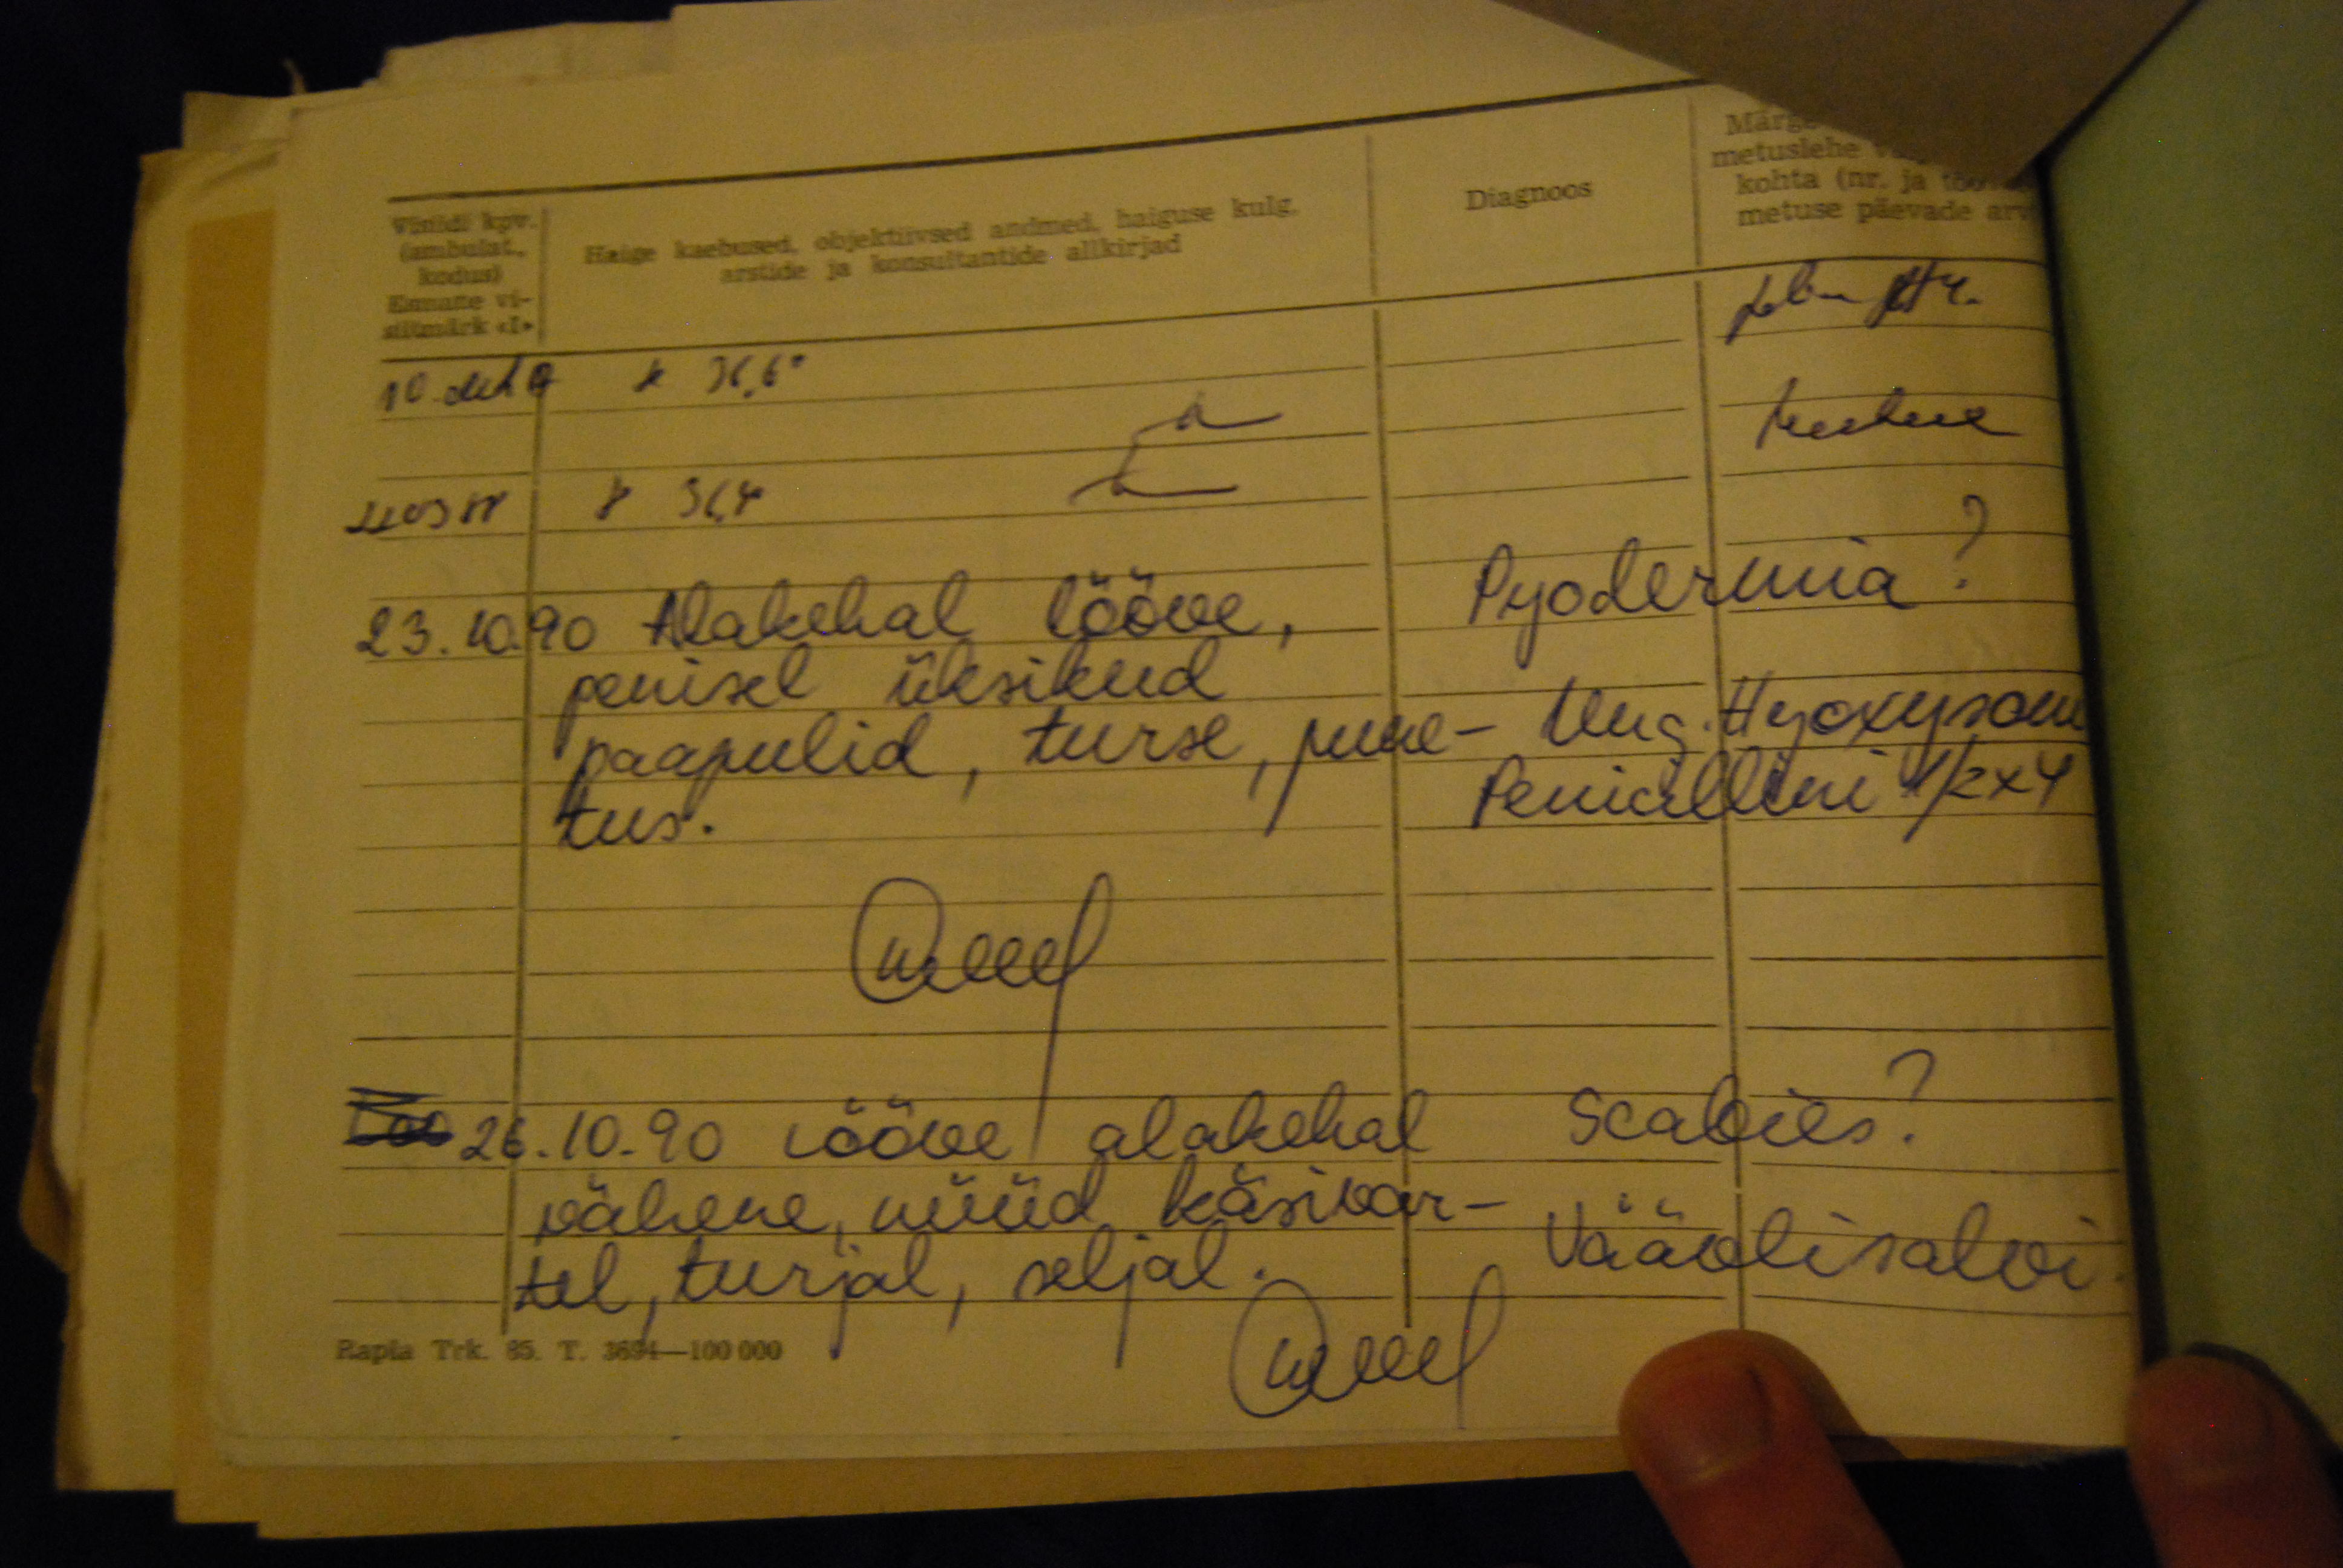 Visiidi kpv.
(ambulat.,
kodus)
Esmane vi-
siitmärk «I»
Haige kaebused, objektiivsed andmed, haiguse kulg,
arstide ja konsultantide allkirjad
Diagnoos
metuslehe
kohta (nr. ja
metuse päevade
36,6°
36,4
23.10.90 Alakehal lööve,
penisel üksikud
paapulid, turse, pune-
tus.
Pyodermia?
Ung. Hyoxysoni
Penicillini 1/2x4
26.10.90 Lööve alakehal
vähene, nüüd käsivar-
tel, turjal, seljal.
Scabies?
Väävlisalvi.
Rapla Trk. 85. T. 3694—100 000